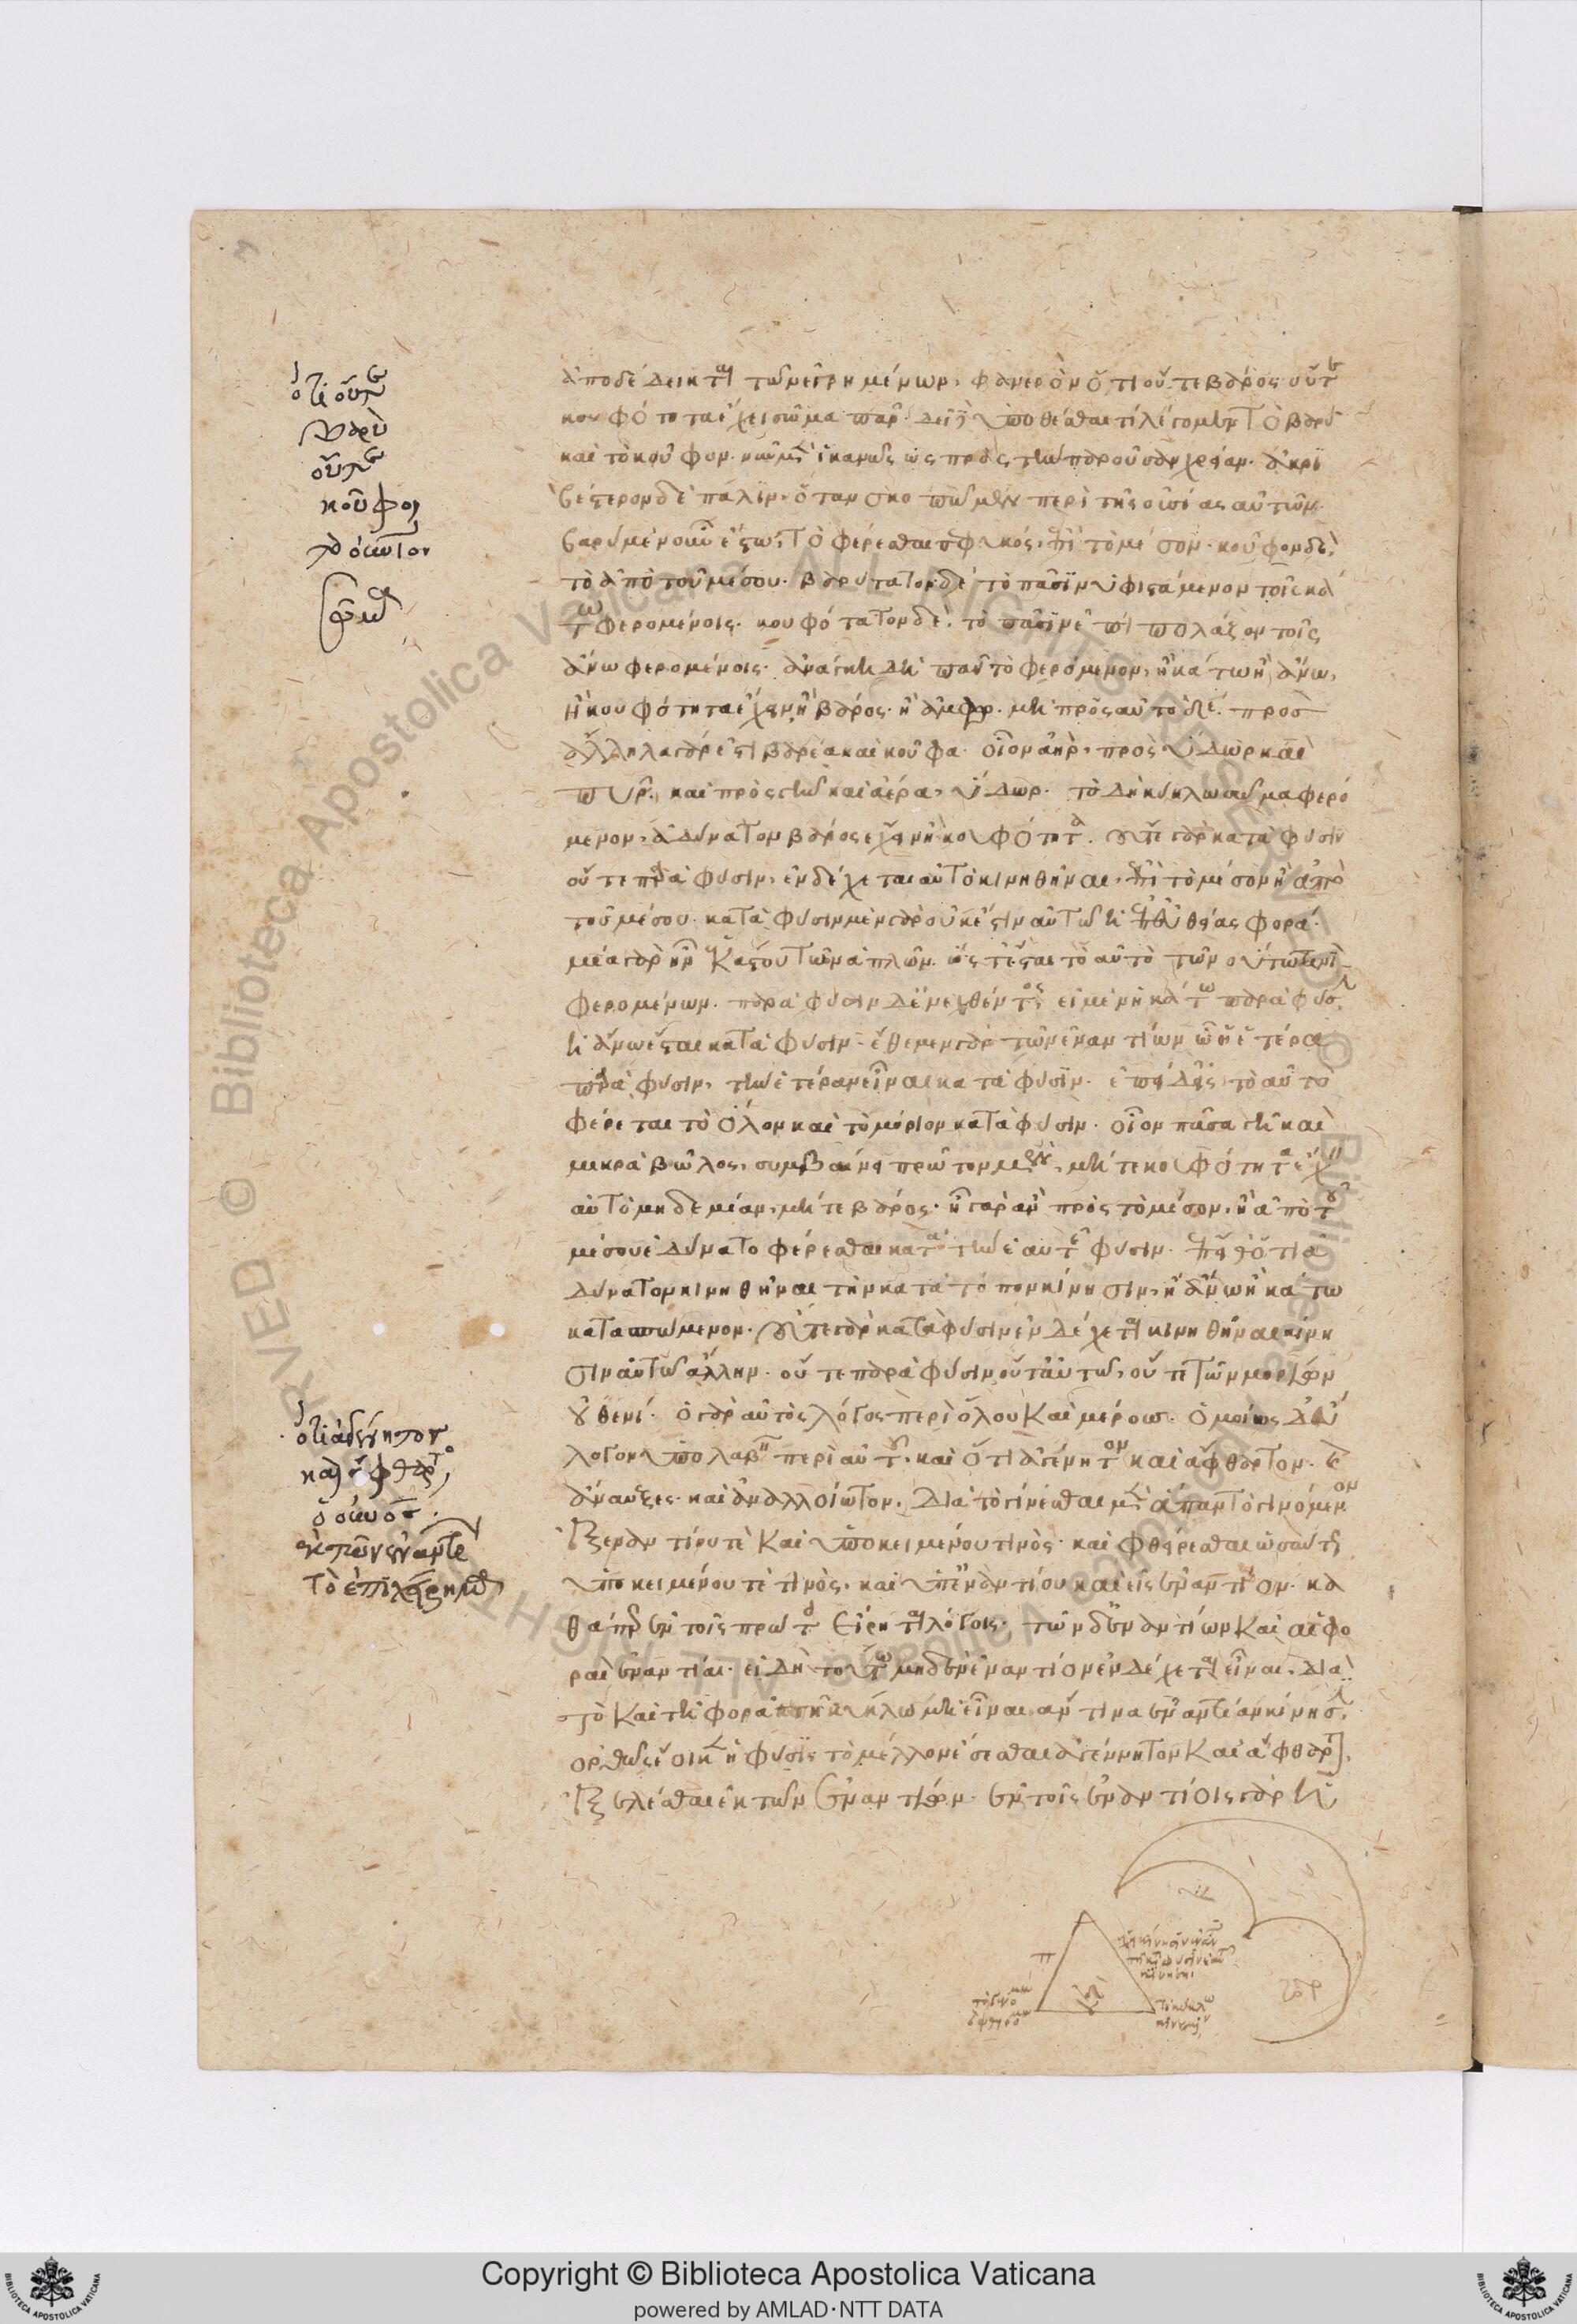 ὅτι οὔτε
βαρὺ
οὔτε
κοῦφον
τὸ αἰώνιον
ἀποδέδεικται τῶν εἰρημένων, φανερὸν ὅτι οὔτε βάρος οὔτε
κουφότητα ἔχει σῶμα παν· δεῖ δὲ ὑποθέσθαι τί λέγομεν τὸ βαρὺ
καὶ τὸ κοῦφον· νῦν μὲν ἱκανῶς ὡς πρὸς τὴν παροῦσαν χρείαν· ἀκρι
βέστερον δὲ πάλιν, ὅταν σκοπῶμεν περὶ τῆς οὐσίας αὐτῶν·
βαρὺ μὲν οὖν ἔστω, τὸ φέρεσθαι πεφυκός, ἐπὶ τὸ μέσον· κοῦφον δὲ,
τὸ ἀπὸ τοῦ μέσου· βαρύτατον δὲ τὸ πᾶσιν ὑφιστάμενον τοῖς κά
τω φερομένοις· κουφότατον δὲ, τὸ πᾶσιν ἐπιπολάζον τοῖς
ἄνω φερομένοις· ἀνάγκη δὴ πᾶν τὸ φερόμενον, ἢ κάτω ἢ ἄνω,
ἢ κουφότητα ἔχειν ἢ βάρος· ἢ ἄμφω· μὴ πρὸς αὐτὸ δέ· πρὸσ
ἄλληλα γάρ ἐστι βαρέα καὶ κοῦφα· οἷον ἀὴρ, πρὸς ὕδωρ καὶ
πῦρ· καὶ πρὸς γῆν καὶ ἀέρα, ὕδωρ· τὸ δὴ κύκλω σῶμα φερό
μενον, ἀδύνατον βάρος ἔχειν ἢ κουφότητα· οὔτε γὰρ κατὰ φύσιν
οὔτε παρὰ φύσιν, ἐνδέχεται αὐτὸ κινηθῆναι, ἐπὶ τὸ μέσον ἢ ἀπὸ
τοῦ μέσου· κατὰ φύσιν μὲν γὰρ οὐκ ἔστιν αὐτῶ ἡ ἐπ' εὐθείας φορά·
μία γὰρ ἦν ἑκάστου τῶν ἁπλῶν· ὥστ' ἔσται τὸ αὐτὸ τῶν οὕτω τινὶ
φερομένων· παρὰ φύσιν δ' ἐνεχθέντος εἰ μὲν ἡ κάτω παρὰ φύσιν
ἡ ἄνω ἔσται κατὰ φύσιν· ἔθεμεν γὰρ τῶν ἐναντίων ὧν ἡ ἑτέρα
παρὰ φύσιν, τὴν ἑτέραν εἶναι κατὰ φύσιν· ἐπεὶ δ' εἰς τὸ αὐτὸ
φέρεται τὸ ὅλον καὶ τὸ μόριον κατὰ φύσιν· οἷον πᾶσα γῆ καὶ
μικρὰ βῶλος, συμβαίνει πρῶτον μὲν, μήτε κουφότητα ἔχειν
αὐτὸ μηδεμίαν, μήτε βάρος· ἢ γὰρ ἂν πρὸς τὸ μέσον, ἢ ἀπὸ τοῦ
μέσου ἐδύνατο φέρεσθαι κατὰ τὴν ἑαυτοῦ φύσιν· ἔπειθ' ὅτι ἀ
δύνατον κινηθῆναι τὴν κατὰ τόπον κίνησιν, ἢ ἄνω ἢ κάτω
κατασπώμενον· οὔτε γὰρ κατὰ φύσιν ἐνδέχεται κινηθῆναι κίνη
σιν αὐτῶ ἄλλην· οὔτε παρὰ φύσιν οὔτ' αὐτῶ, οὔτε τῶν μορίων
οὐθενί· ὁ γὰρ αὐτὸς λόγος περὶ ὅλου καὶ μέρους· ὁμοίως δ' εὔ
λογον ὑπολαβεῖν περὶ αὐτοῦ, καὶ ὅτι ἀγένητον καὶ ἄφθαρτον· καὶ
ἀναυξὲς· καὶ ἀναλλοίωτον, διὰ τὸ γίνεσθαι μὲν ἅπαν τὸ γινόμενον
ἐξ ἐναντίου τὲ καὶ ὑποκειμένου τινός· καὶ φθείρεσθαι ὡσαύτως
ὑποκειμένου τέ τινὸς, καὶ ὑπ' ἐναντίου καὶ εἰς ἐναντίον· κα
θάπερ ἐν τοῖς πρώτοις εἴρηται λόγοις· τῶν δ' ἐναντίων καὶ αἱ φο
ραὶ ἐναντίαι· εἰ δὴ τούτω μηδὲν ἐναντίον ἐνδέχεται εἶναι, διὰ
τὸ καὶ τῆ φορᾶ τῆ κύκλω μὴ εἶναι ἄν τινα ἐναντίαν κίνησιν,
ὀρθῶς ἔοικεν ἡ φύσις τὸ μέλλον ἔσεσθαι ἀγέννητον καὶ ἄφθαρτον,
ἐξελέσθαι ἐκ τῶν ἐναντίων· ἐν τοῖς ἐναντίοις γὰρ ἡ
ὅτι ἀγένητον
καὶ ἄφθαρτον
ὁ οὐνος·
ἐκ τῶν ἐναντίων
τὸ ἐπιχείρημα